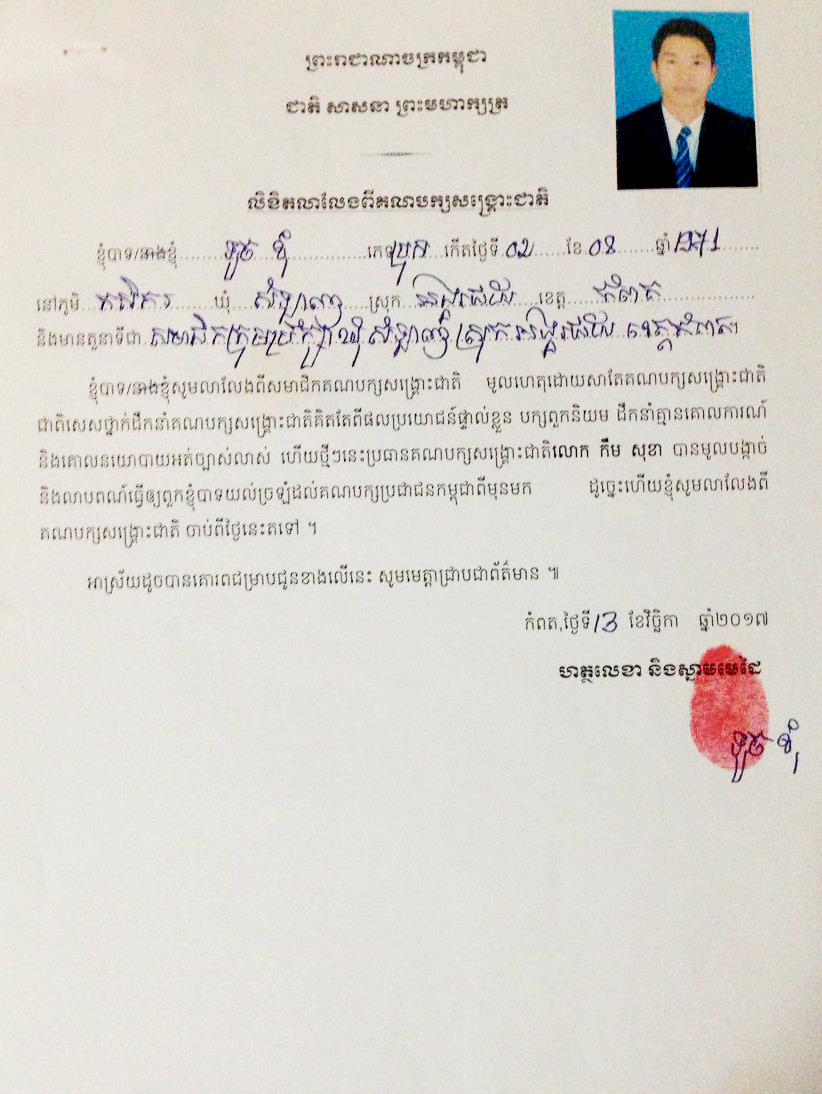 ព្រះរាជាណាចក្រកម្ពុជា
ជាតិ សាសនា ព្រះមហាក្សត្រ
លិខិតលាលែងពីគណបក្សសង្គ្រោះជាតិ
ខ្ញុំបាទ/នាងខ្ញុំ ទូច ខុំ ភេទ ប្រុស កើតថ្ងៃទី 02 ខែ 08 ឆ្នាំ 1971
នៅភូមិ ឃុំ សំឡាញ ស្រុក អង្គរជ័យ ខេត្ត កំពត
និងមានតួនាទីជា សមាជិកក្រុមប្រឹក្សាឃុំសំឡាញ ស្រុកអង្គរជ័យ ខេត្តកំពត។
ខ្ញុំបាទ/នាងខ្ញុំសូមលាលែងពីសមាជិកគណបក្សសង្គ្រោះជាតិ មូលហេតុដោយសាតែគណបក្សសង្គ្រោះជាតិ
ជាពិសេសថ្នាក់ដឹកនាំគណបក្សសង្គ្រោះជាតិគិតតែពីផលប្រយោជន៍ផ្ទាល់ខ្លួន បក្សពួកនិយម ដឹកនាំគ្មានគោលការណ៍
និងគោលនយោបាយអត់ច្បាស់លាស់ ហើយថ្មីៗនេះប្រធានគណបក្សសង្គ្រោះជាតិលោក កឹម សុខា បានមូលបង្កាច់
និងលាបពណ៍ធ្វើឲ្យពួកខ្ញុំបាទយល់ច្រឡំដល់គណបក្សប្រជាជនកម្ពុជាពីមុនមក ដូច្នេះហើយខ្ញុំសូមលាលែងពី
គណបក្សសង្គ្រោះជាតិ ចាប់ពីថ្ងៃនេះតទៅ ។
អាស្រ័យដូចបានគោរពជម្រាបជូនខាងលើនេះ សូមមេត្តាជ្រាបជាព័ត៌មាន ៕
កំពត,ថ្ងៃទី 13 ខែវិច្ឆិកា ឆ្នាំ២០១៧
ហត្ថលេខា និងស្នាមមេដៃ
ទូច ខុំ